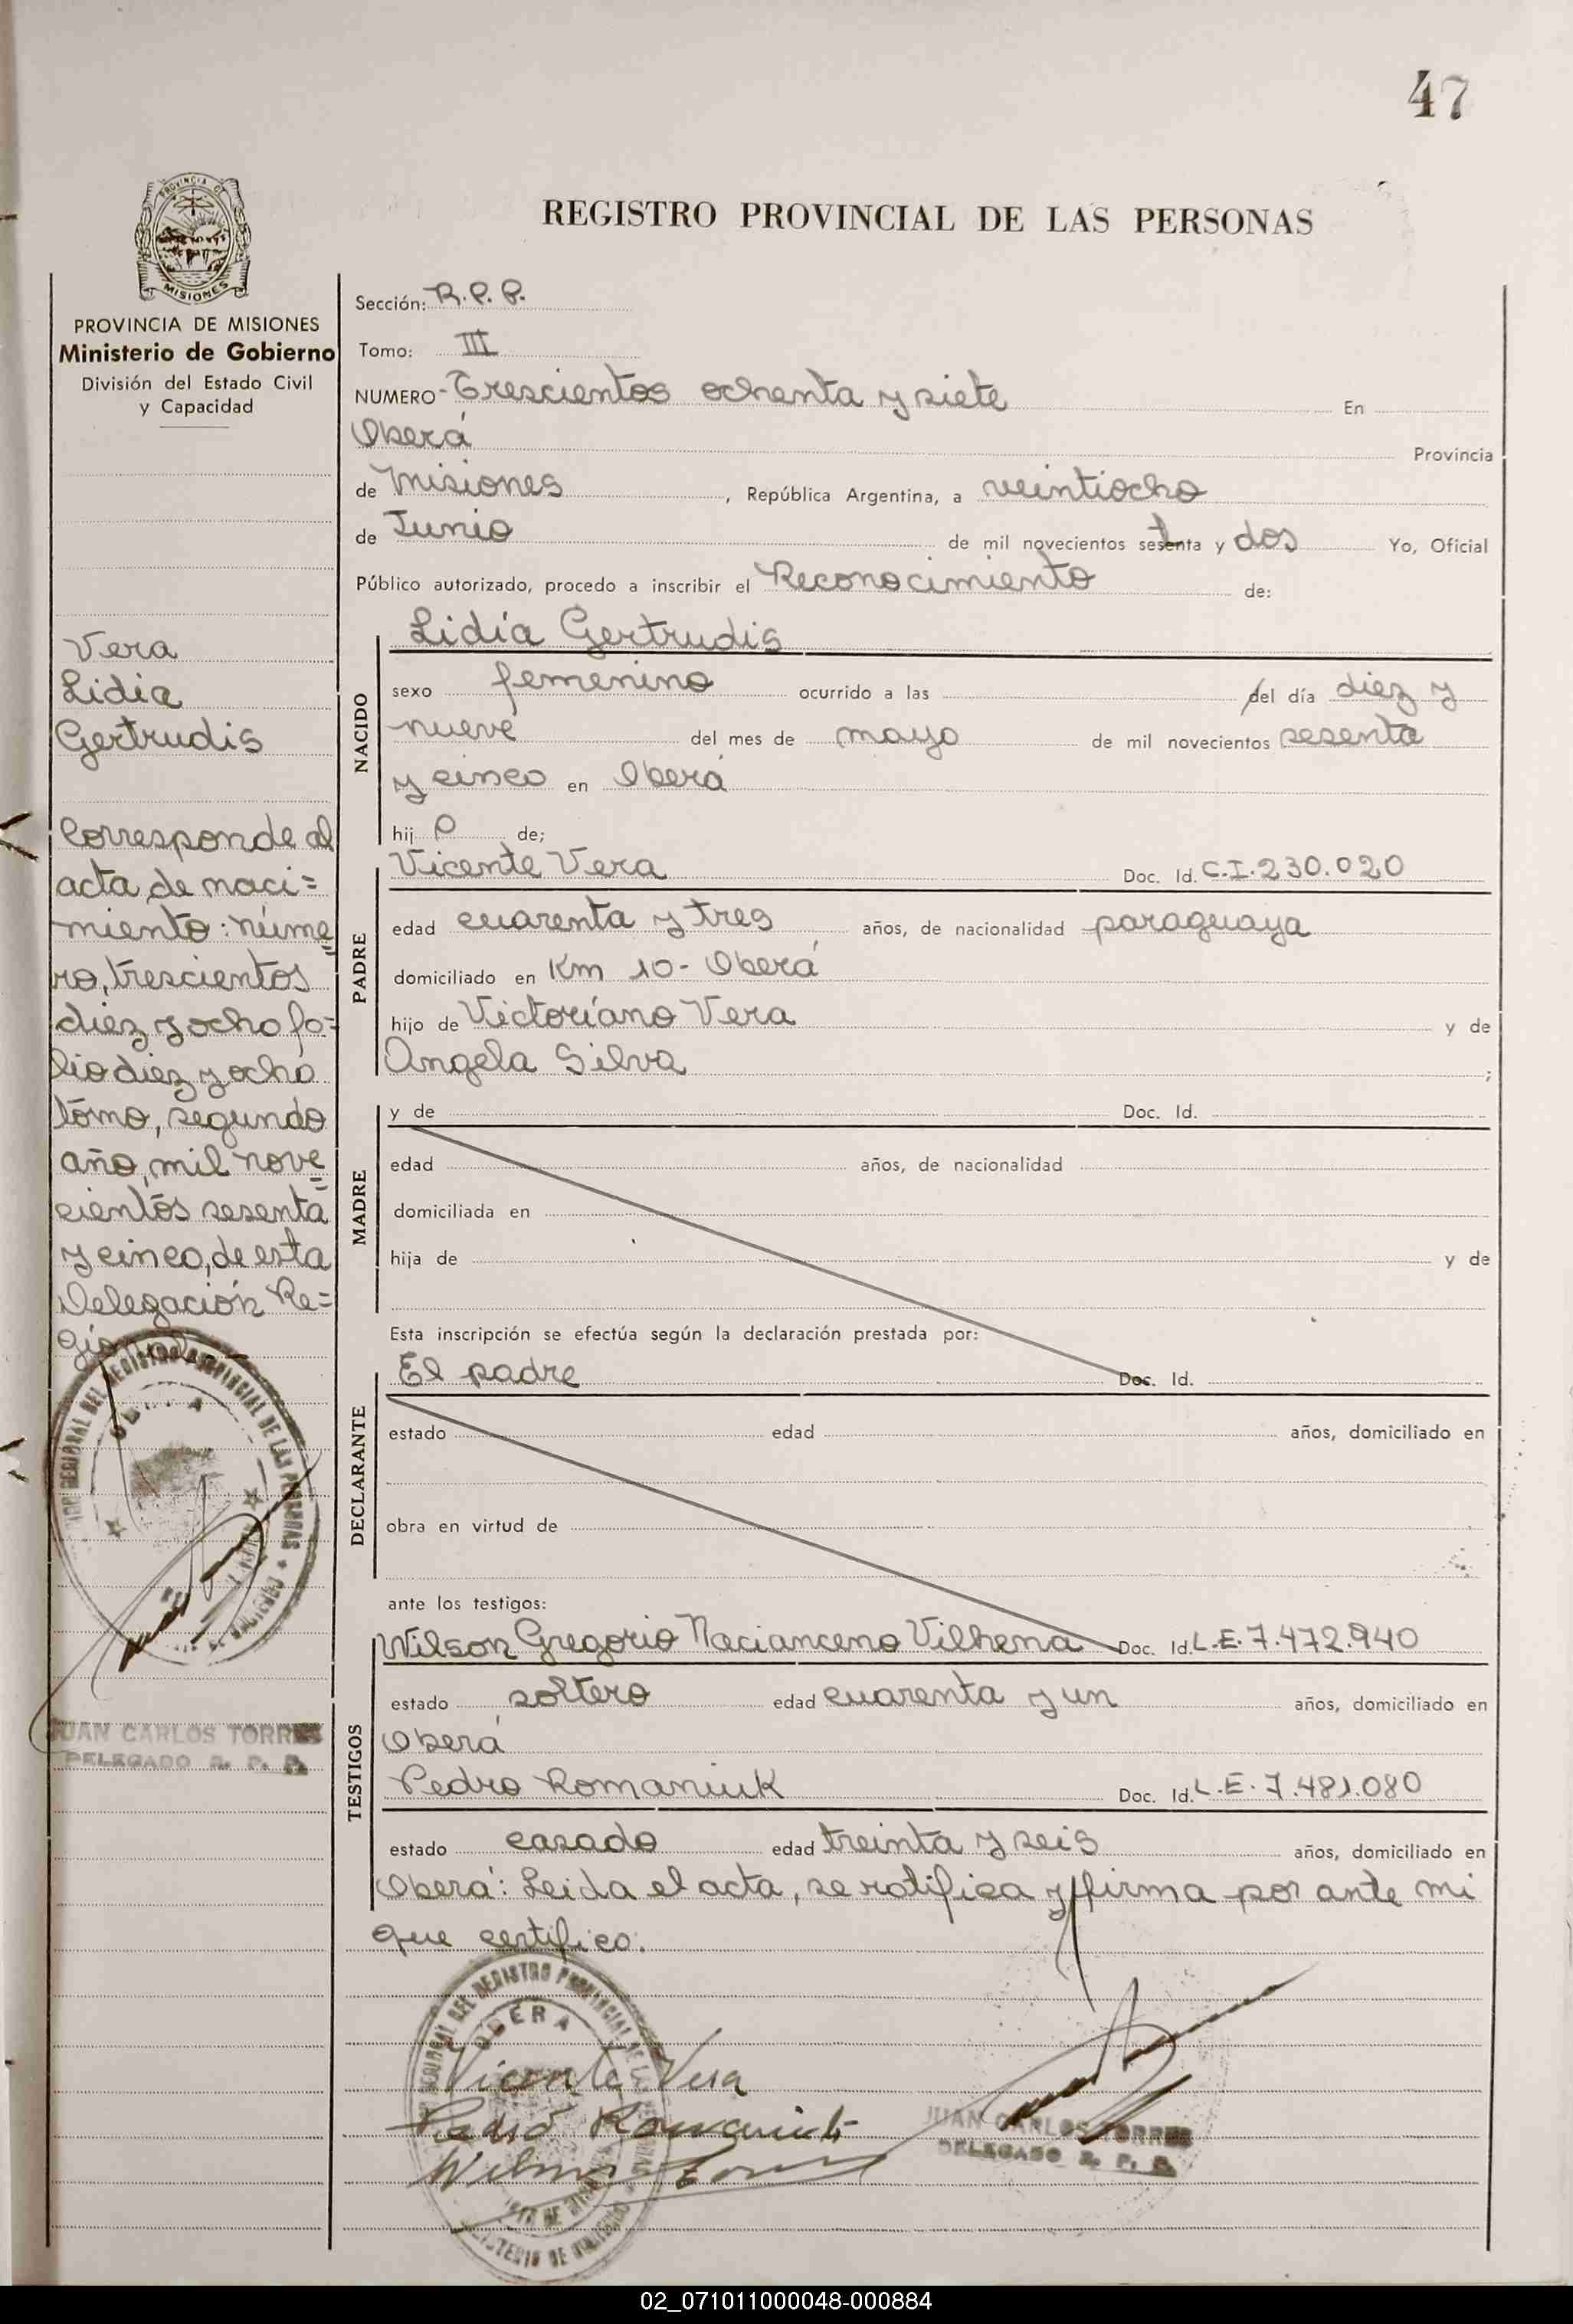 47
REGISTRO PROVINCIAL DE LAS PERSONAS
PROVINCIA DE MISIONES
MISIONES
PROVINCIA DE MISIONES
Ministerio de Gobierno
División del Estado Civil
y Capacidad
Vera
Lidia
Gertrudis
Corresponde al
acta de naci=
miento: núme=
ro, trescientos
diez y ocho fo=
lio diez y ocho
tomo, segundo
año, mil nove=
cientos sesenta
y cinco, de esta
Delegación Re=
gional
JUAN CARLOS TORRES
DELEGADO R. P. P.
Sección: R.P.P.
Tomo: III
NUMERO- Trescientos ochenta y siete En
Oberá Provincia
de Misiones, República Argentina, a veintiocho
de Junio de mil novecientos setenta y dos Yo, Oficial
Público autorizado, procedo a inscribir el Reconocimiento de:
Lidia Gertrudis
NACIDO
sexo femenino ocurrido a las del día diez y
nueve del mes de mayo de mil novecientos sesenta
y cinco en Oberá
hij de;
PADRE
Vicente Vera Doc. Id. C.I.230.020
edad cuarenta y tres años, de nacionalidad paraguaya
domiciliado en Km 10- Oberá
hijo de Victoriano Vera y de
Angela Silva ;
MADRE
y de Doc. Id.
edad años, de nacionalidad
domiciliada en
hija de y de
Esta inscripción se efectúa según la declaración prestada por:
DECLARANTE
El padre Doc. Id.
estado edad años, domiciliado en
obra en virtud de
ante los testigos:
TESTIGOS
Wilson Gregorio Nacianceno Vilhena Doc. Id. L.E.7.472.940
estado soltero edad cuarenta y un años, domiciliado en
Oberá
Pedro Romaniuk Doc. Id. L.E.7.481.080
estado casado edad treinta y seis años, domiciliado en
Oberá: Leida el acta, se ratifica y firma por ante mi
que certifico.
OBERA
Vicente Vera
Pedro Romaniuk
JUAN CARLOS TORRES
DELEGADO R. P. P.
02_071011000048-000884